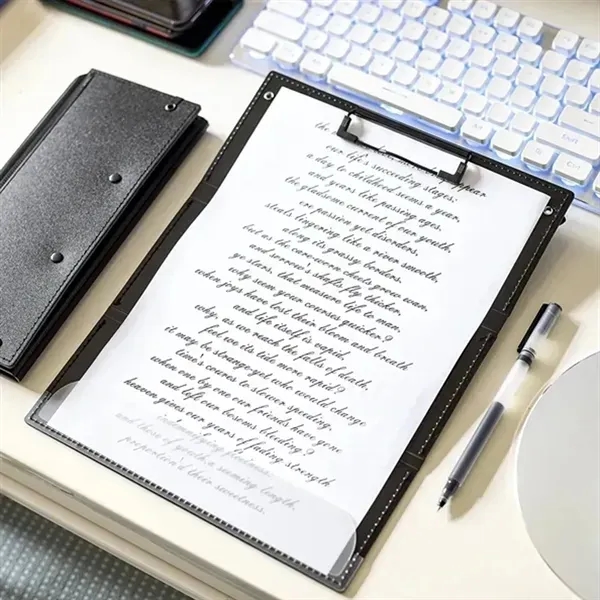 the more we live, more brief appear
our life's succeeding stages;
a day to childhood seems a year,
and years like passing ages.
the gladsome current of our youth,
ere passion yet disorders,
steals lingering like a river smooth,
along its grassy borders.
but as the care-worn cheeks grow wan,
and sorrow's shafts fly thicker,
ye stars, that measure life to man,
why seem your courses quicker?
when joys have lost their bloom and breath
and life itself is vapid,
why, as we reach the falls of death,
feel we its tide more rapid?
it may be strange-yet who would change
time's coures to slower speeding,
when one by one our friends have gone
and left our bosoms bleeding?
heaven gives our years of fading strength
indemnifying fleetness;
and those of youth, a seeming length,
proportion'd their sweetness.